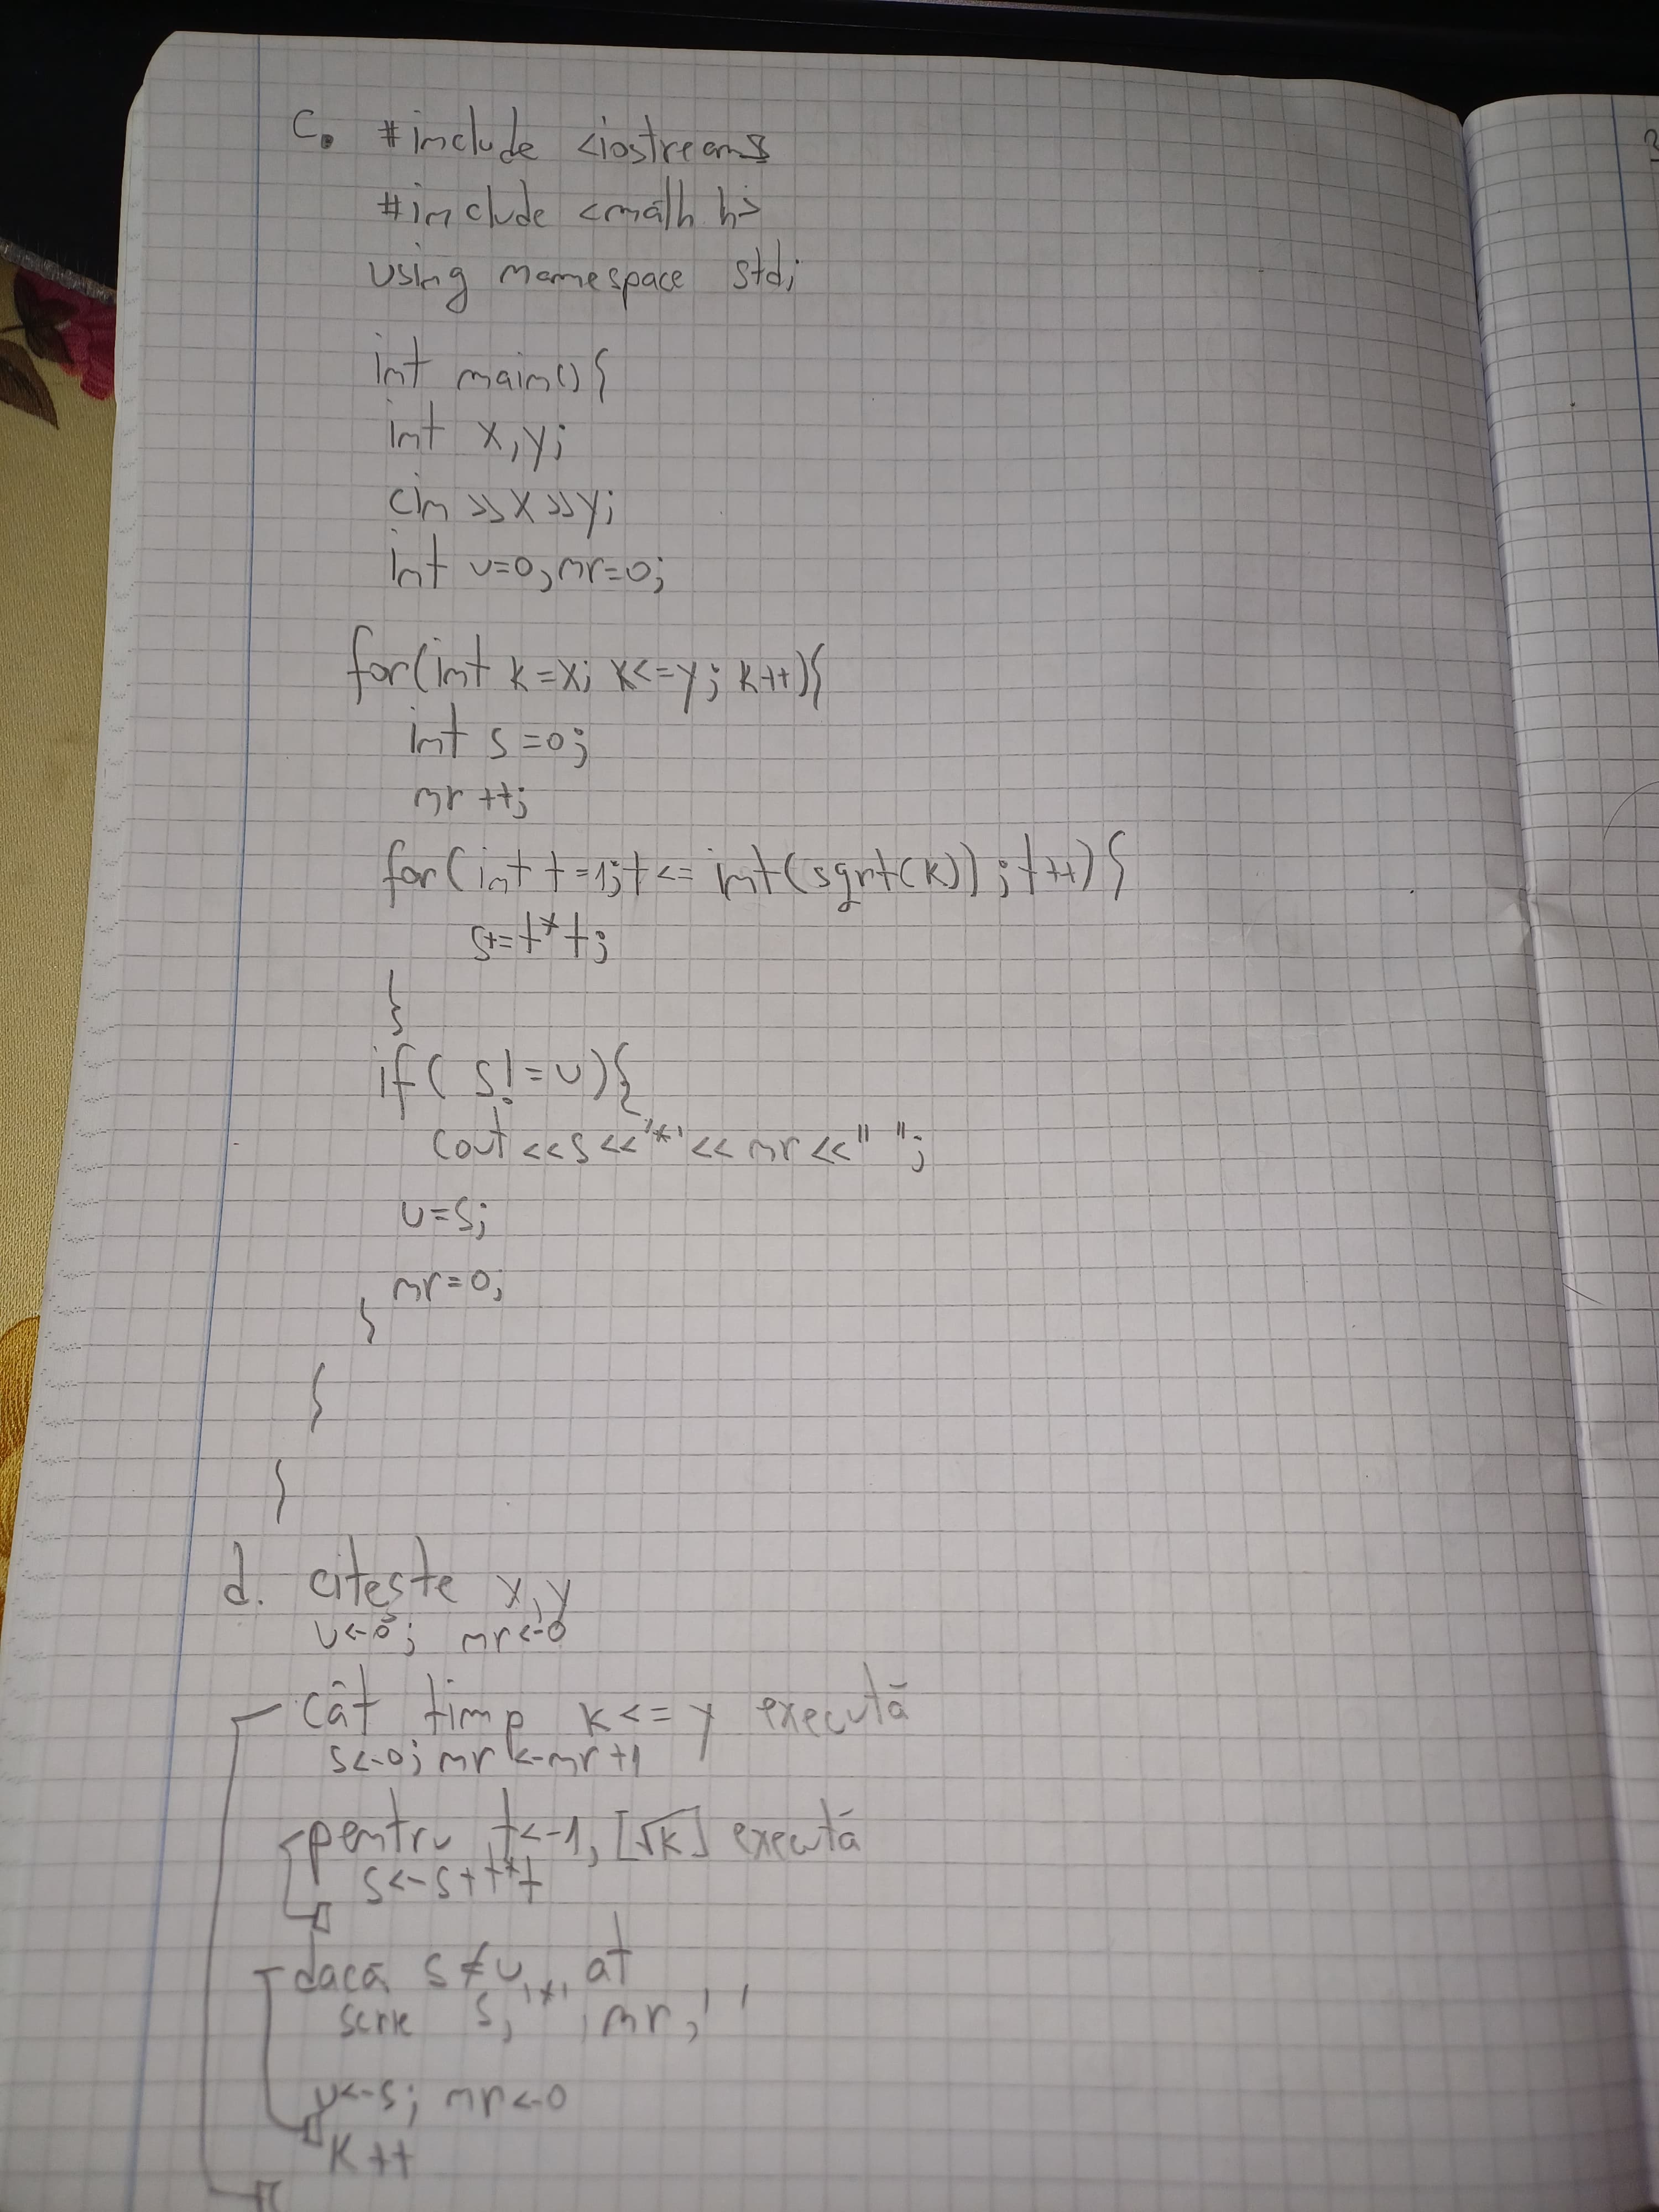 c. #include <iostream>
#include <math h>
using namespace std;
int main(){
int x,y;
cin >>x>>y;
int u=0,nr=0;
for(int k=x; k<=y; k++){
int s=0;
nr ++;
for(int t=1;t<= int(sqrt(k));t++){
s+=t*t;
}
if( s!=u){
cout <<s<<'*'<< nr <<" ";
u=s;
nr=0;
}
}
}
d. citește x,y
u<-0; nr<-0
Cât timp k<=y execută
s<-0; nr <-nr+1
pentru t<-1, [√k] execută
s<-s+t*t
dacă s≠u, at
scrie s,'*',nr,' '
u<-s; nr<-0
k++